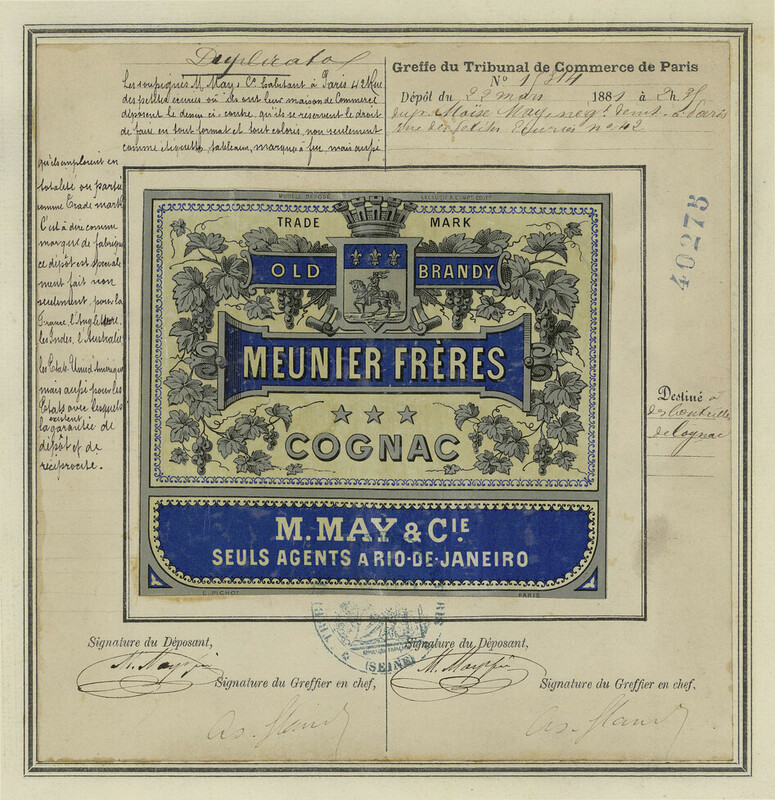 Duplicata
Les soussignés M. May & Cie habitant à Paris 42 Rue
des petites écuries où ils ont leur maison de Commerce
déposent le dessin ci-contre, qu'ils se réservent le droit
de faire en tout format et tout coloris, non seulement
comme étiquette, tableaux, marque à feu, mais aussi
qu'ils emploient en
totalité ou partie
comme Trade mark
C'est à dire comme
marque de fabrique
ce dépôt est spéciale
ment fait non
seulement pour la
France, l'Angleterre,
les Indes, l'Australie
les Etats-Unis
mais aussi pour les
Etats avec lesquels
existent
la garantie de
dépôt et de
réciprocité.
Greffe du Tribunal de Commerce de Paris
No 15314
Dépôt du 22 mars 1881 à 2h.
Moïse May, negt. demt. à Paris
rue des petites Ecuries no 42
40275
Destiné à
des bouteilles
de Cognac
MODÈLE DÉPOSÉ
TRADE MARK
OLD BRANDY
MEUNIER FRÈRES
COGNAC
M. MAY & CIE
SEULS AGENTS A RIO-DE-JANEIRO
E. PICHOT PARIS
(SEINE)
Signature du Déposant,
M. May
Signature du Greffier en chef,
Signature du Déposant,
M. May
Signature du Greffier en chef,